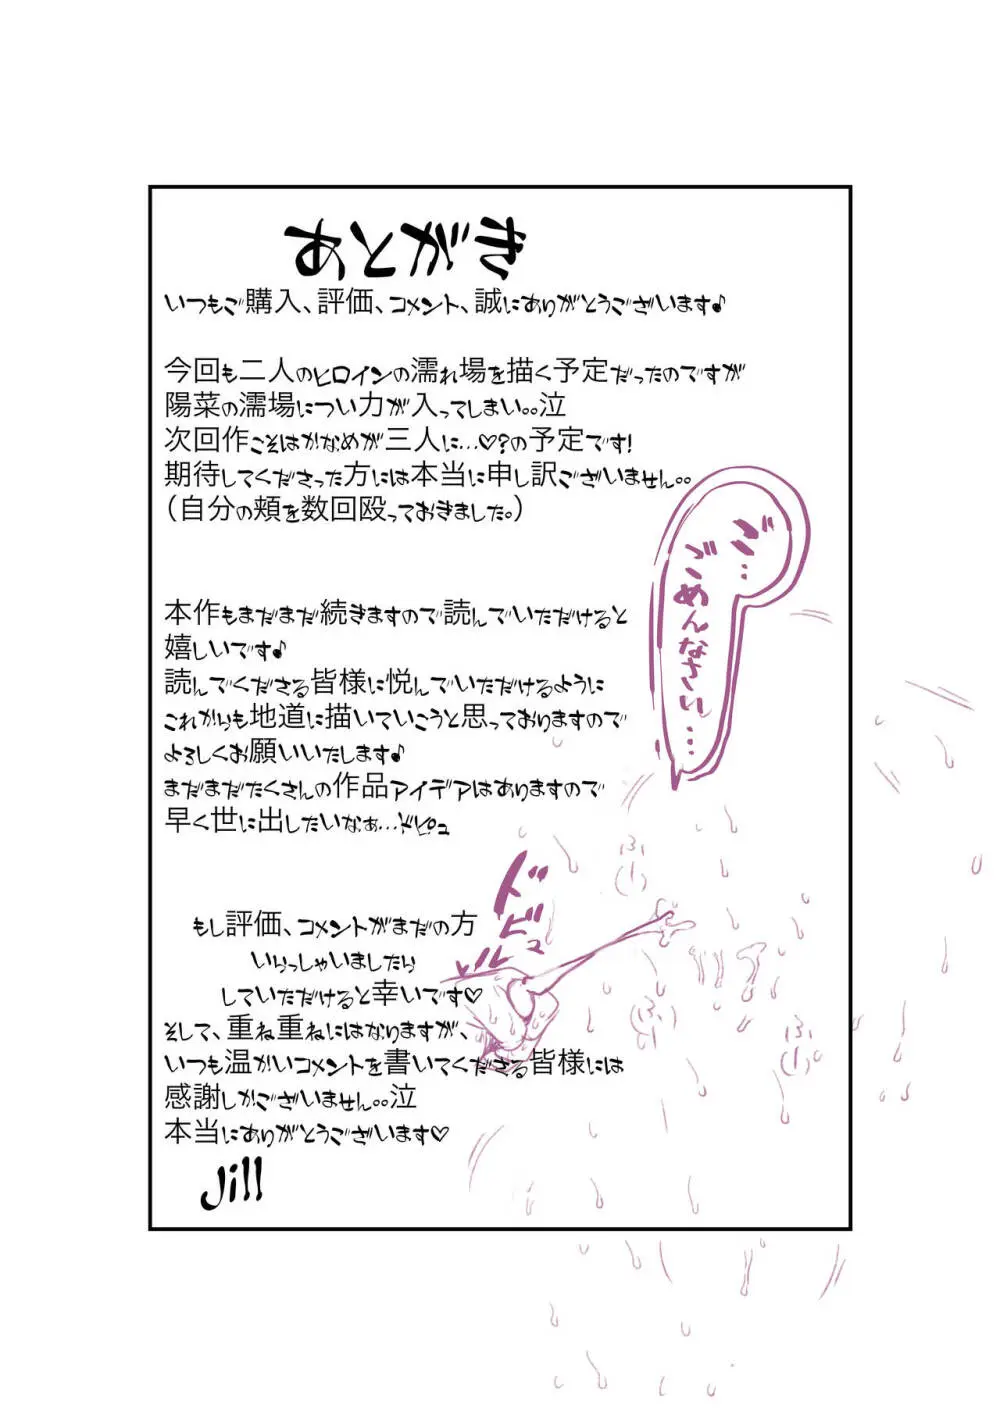 あとがき
いつもご購入、評価、コメント、誠にありがとうございます♪
今回も二人のヒロインの濡れ場を描く予定だったのですが
陽菜の濡場につい力が入ってしまい｡｡泣
次回作こそはかなめが三人に…♡?の予定です!
期待してくださった方には本当に申し訳ございません｡｡
（自分の頬を数回殴っておきました。）
ご…
ごめんなさいぃ…
本作もまだまだ続きますので読んでいただけると
嬉しいです♪
読んでくださる皆様に悦んでいただけるように
これからも地道に描いていこうと思っておりますので
よろしくお願いいたします♪
まだまだたくさんの作品アイデアはありますので
早く世に出したいなぁ…ドピュ
ドピュ
ふぅ
もし評価、コメントがまだの方
いらっしゃいましたら
していただけると幸いです♡
そして、重ね重ねにはなりますが、
いつも温かいコメントを書いてくださる皆様には
感謝しかございません｡｡泣
本当にありがとうございます♡
Jill